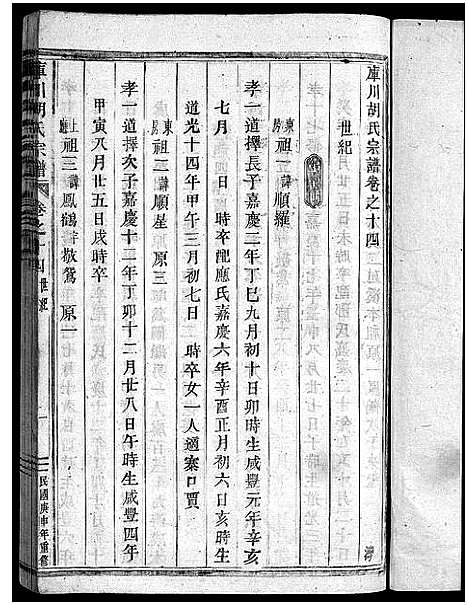 庫川胡氏宗譜卷之十四
世紀
東房祖一諱順羅 原一
孝一道擇長子嘉慶二年丁巳九月初十日卯時生咸豐元年辛亥
七月 日 時卒配應氏嘉慶六年辛酉正月初六日亥時生
道光十四年甲午三月初七日 時卒女一人適寨口賈
東房祖二諱順星 原三
孝一道擇次子嘉慶十二年丁卯十二月廿八日午時生咸豐四年
甲寅八月廿五日戌時卒
上廳祖三諱鳳鶴 行敬鴛 原一
庫川胡氏宗譜 卷之十四 世紀 一 民國庚申年重修